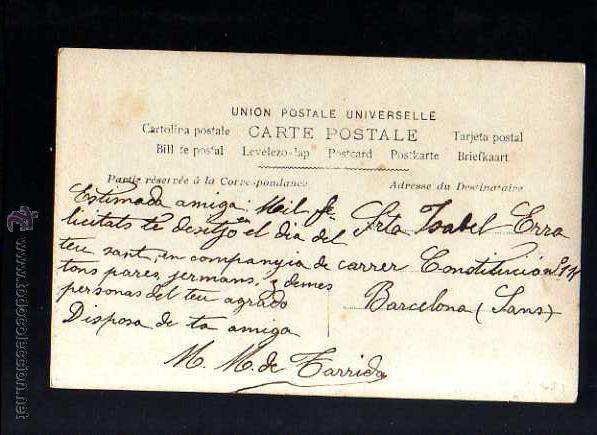 UNION POSTALE UNIVERSELLE
Cartolina postale CARTE POSTALE Tarjeta postal
Bill te postal Levelezo-lap Postcard Postkarte Briefkaart
Partie réservée à la Correspondance
Adresse du Destinataire
Estimada amiga: Mil fe
licitats te desitjo en el dia del
teu sant, en companyia de
tons pares, jermans, y demes
personas del teu agrado
Disposa de ta amiga
M. M. de Tarrida
Srta Isabel Erra
carrer Constitució nº
Barcelona (Sans)
todocoleccion.net